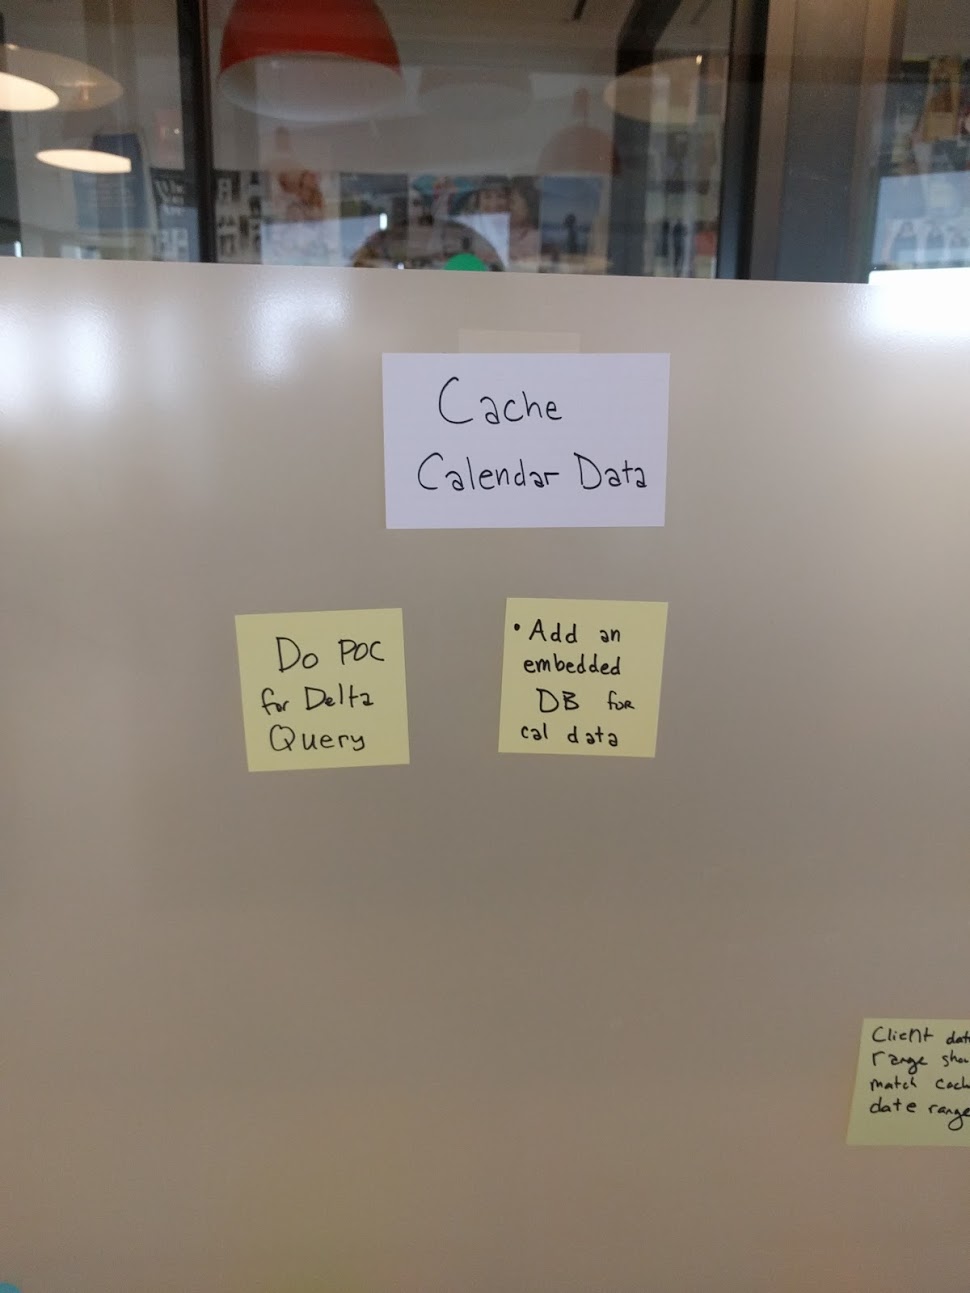 Cache
Calendar Data
Do POC
for Delta
Query
• Add an
embedded
DB for
cal data
Client
range
match
date range